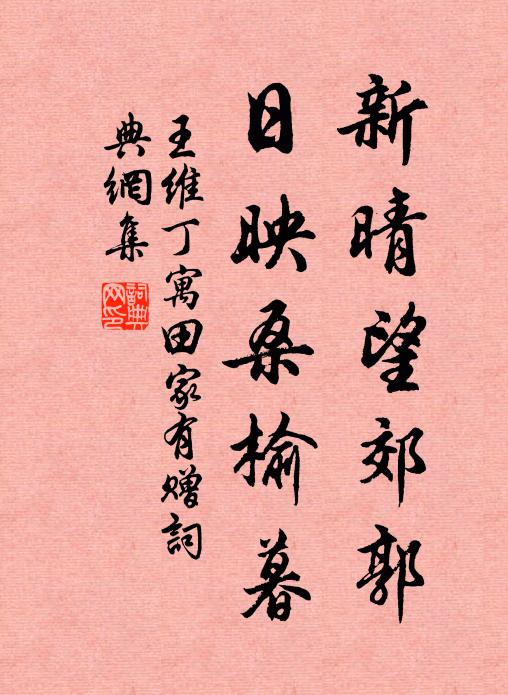 新晴望郊郭
日映桑榆暮
王維丁寓田家有贈詞
典網集
詞典網印